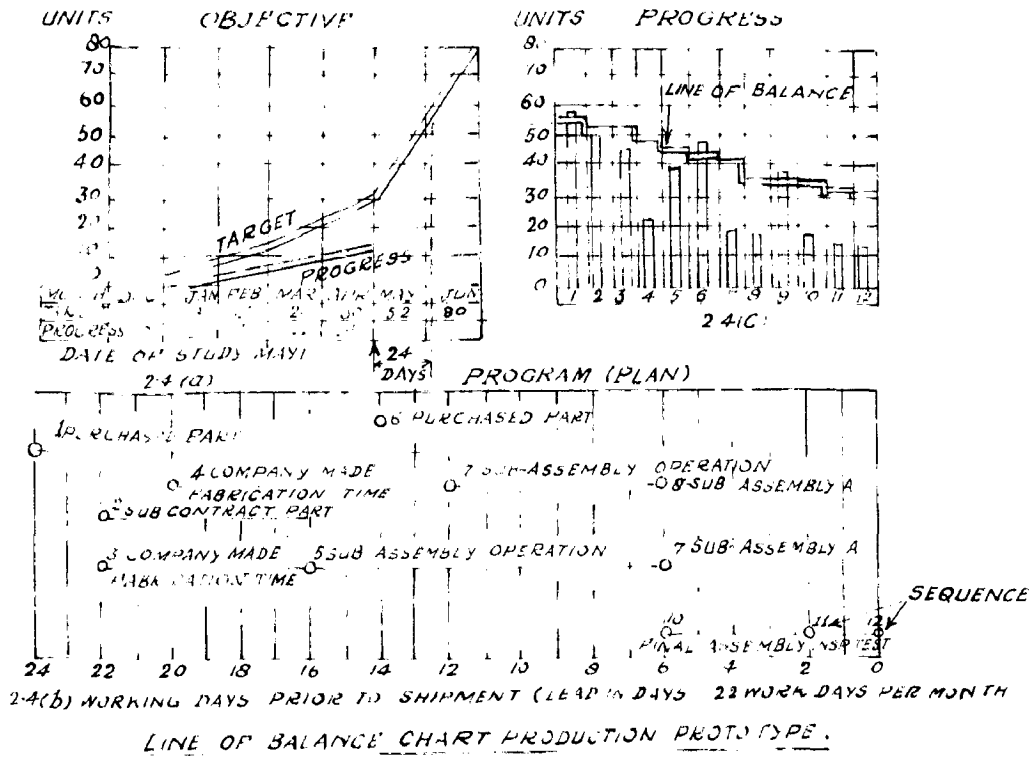 UNITS OBJECTIVE
80
70
60
50
40
30
20
10
0
TARGET
PROGRESS
JAN FEB MAR APR MAY JUN
2 30 52 80
PROGRESS
DATE OF STUDY MAY1
24
DAYS
2.4(a)
UNITS PROGRESS
80
70
60
50
40
30
20
10
0
LINE OF BALANCE
1 2 3 4 5 6 7 8 9 10 11 12
2.4(C)
PROGRAM (PLAN)
6 PURCHASED PART
1 PURCHASED PART
4 COMPANY MADE
FABRICATION TIME
7 SUB-ASSEMBLY OPERATION
8-SUB ASSEMBLY A
2 SUB CONTRACT PART
3 COMPANY MADE
FABRICATION TIME
5 SUB ASSEMBLY OPERATION
7 SUB-ASSEMBLY A
SEQUENCE
10 11 12
FINAL ASSEMBLY INSP TEST
24 22 20 18 16 14 12 10 8 6 4 2 0
2.4(b) WORKING DAYS PRIOR TO SHIPMENT (LEAD IN DAYS 22 WORK DAYS PER MONTH
LINE OF BALANCE CHART PRODUCTION PROTOTYPE.